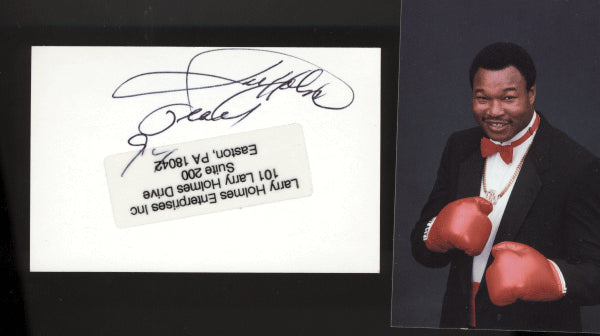 Larry Holmes
Peace
94
Larry Holmes Enterprises Inc
101 Larry Holmes Drive
Suite 200
Easton, PA 18042